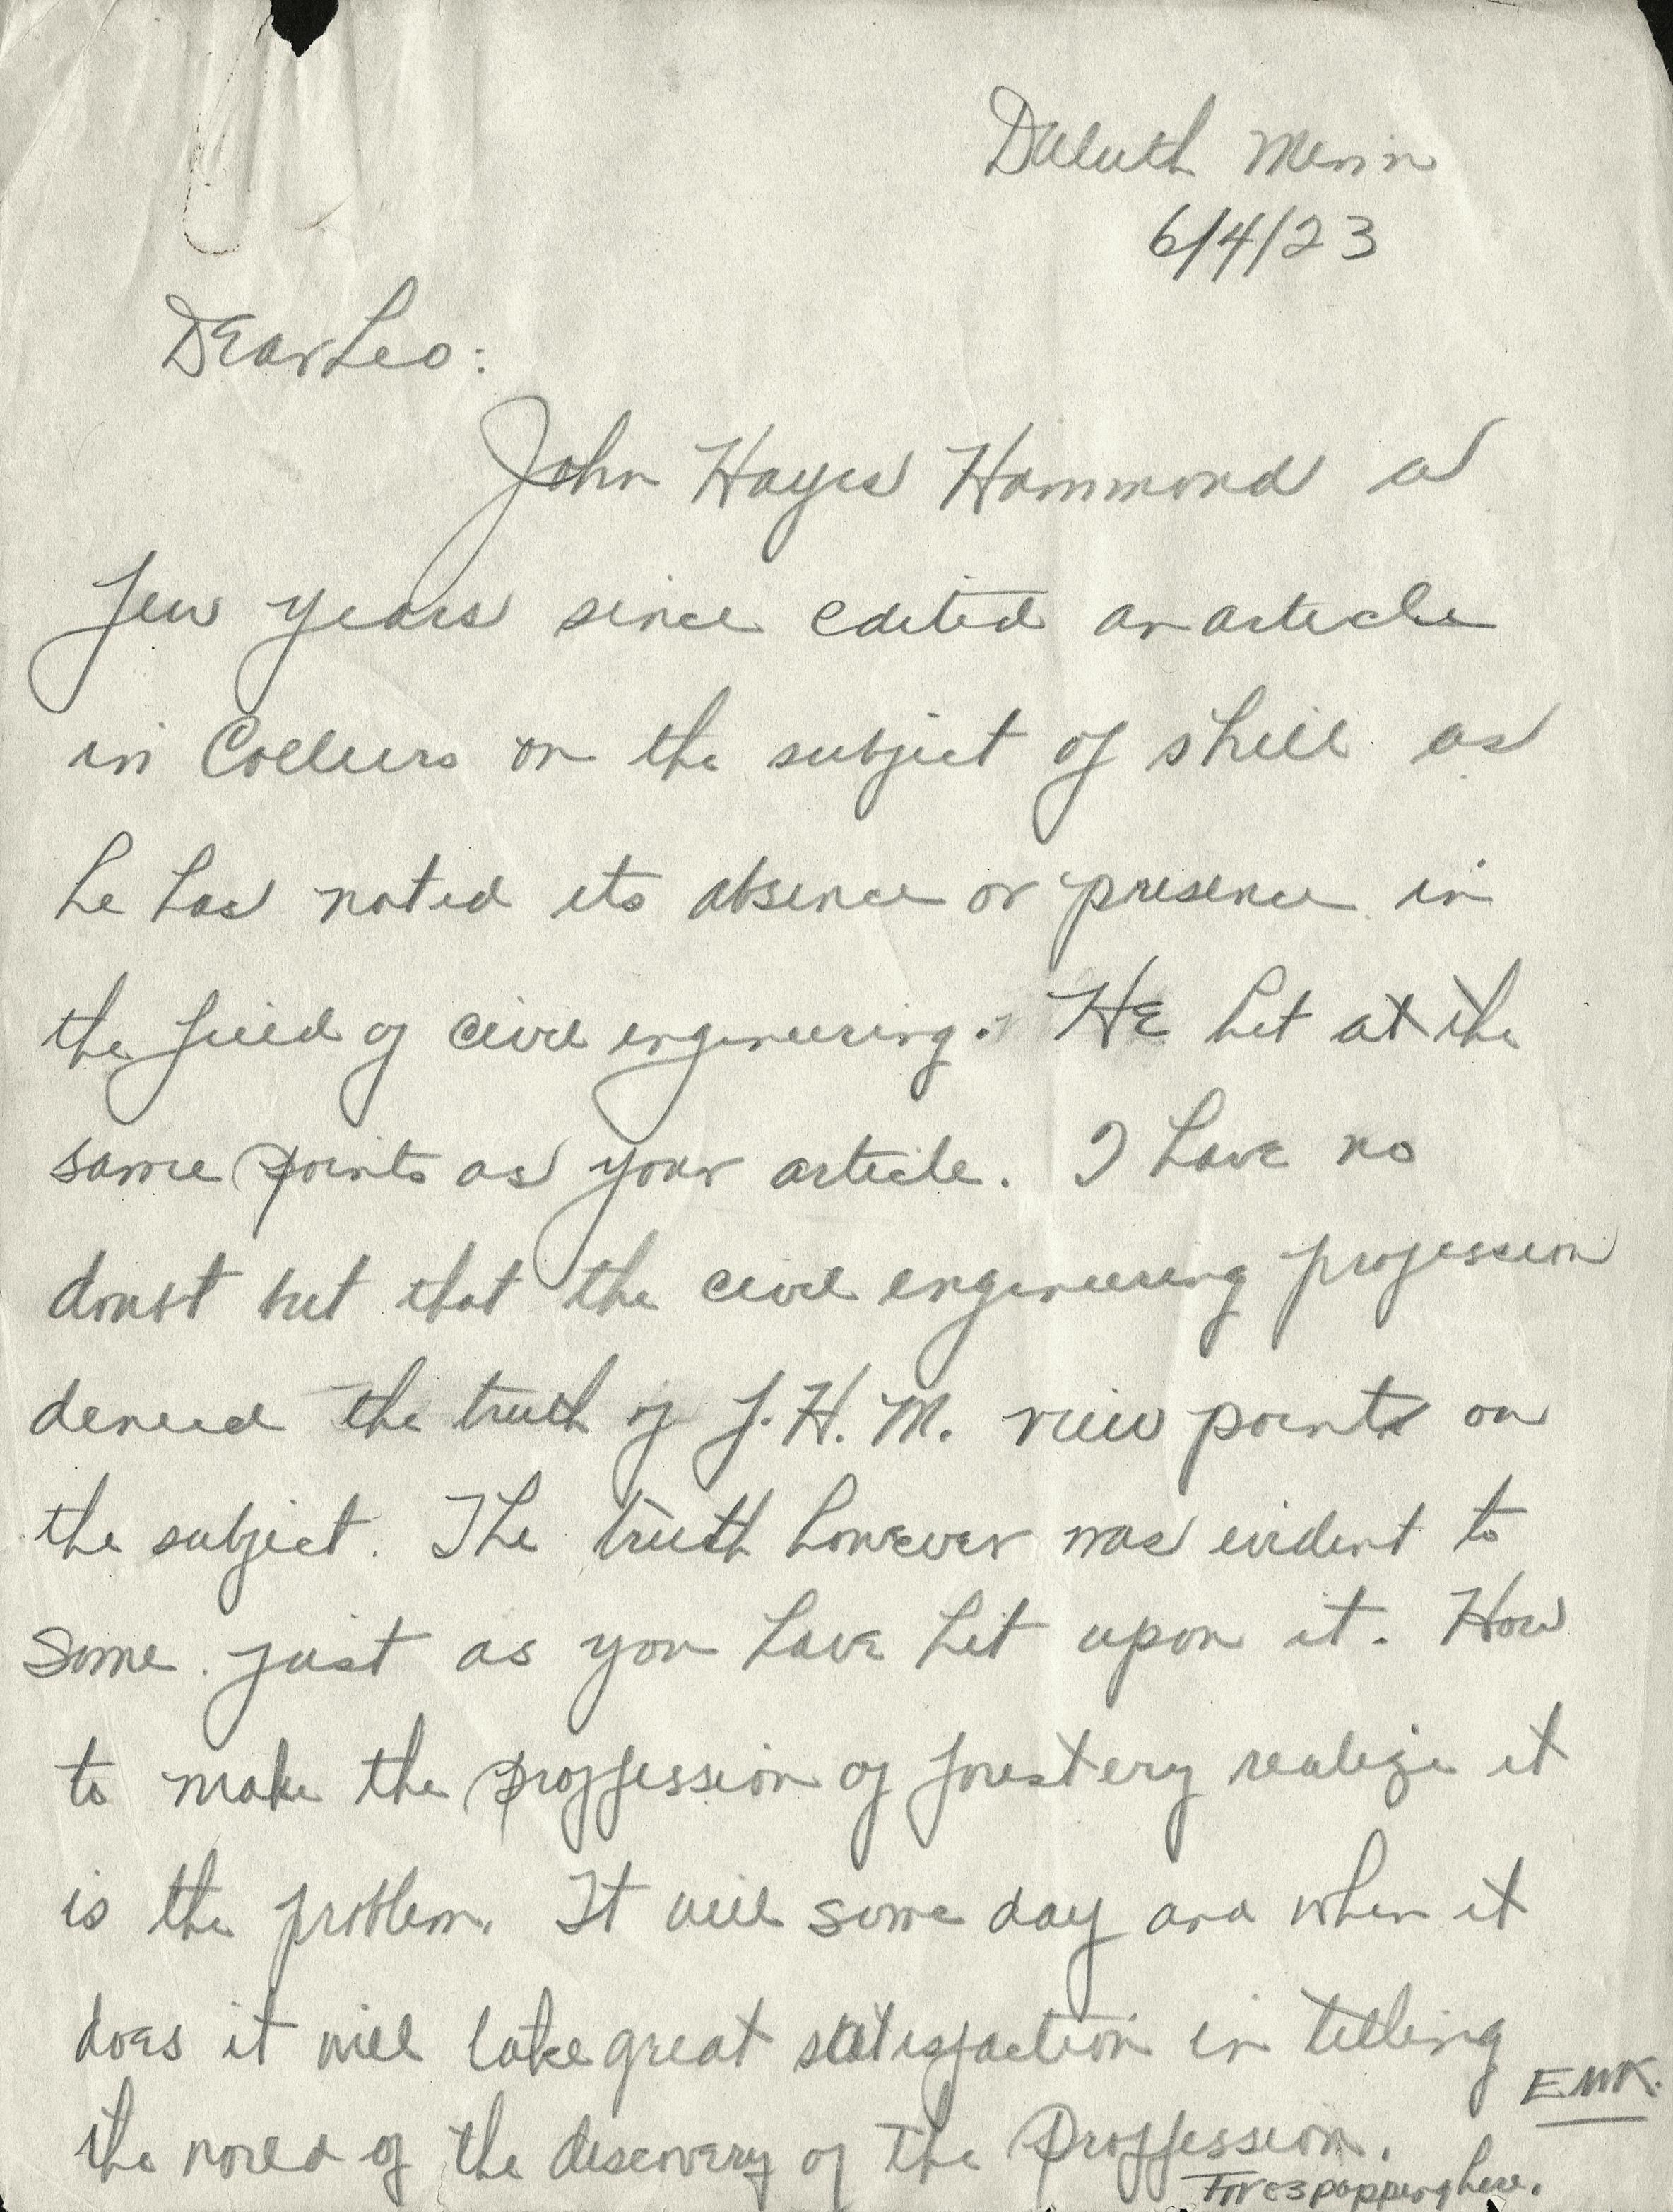 Duluth Minn
6/4/23
Dear Leo:
John Hayes Hammond a
few years since edited an article
in Colliers on the subject of skill as
he has noted its absence or presence in
the field of civil engineering. He hit at the
same points as your article. I have no
doubt but that the civil engineering profession
denied the truth of J.H.M. view points on
the subject. The truth however was evident to
some just as you have hit upon it. How
to make the proffession of forestery realize it
is the problem. It will some day and when it
does it will take great satisfaction in telling
the world of the discovery of the Proffession.
E.M.K.
Fires popping here.